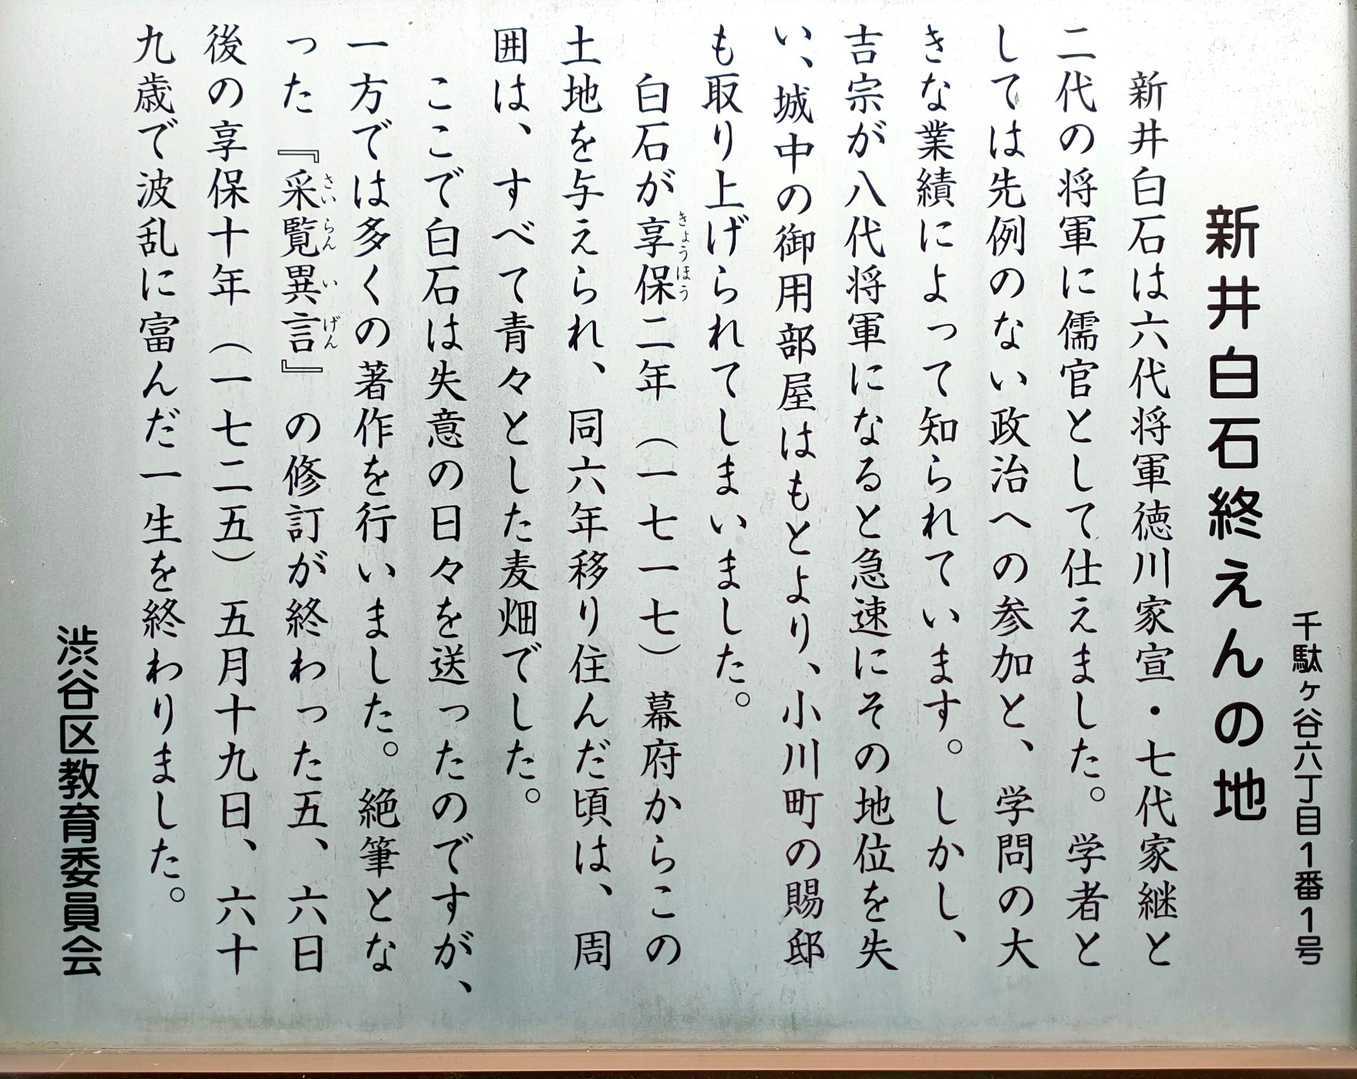 千駄ヶ谷六丁目1番1号
新井白石終えんの地
新井白石は六代将軍徳川家宣・七代家継と
二代の将軍に儒官として仕えました。学者と
しては先例のない政治への参加と、学問の大
きな業績によって知られています。しかし、
吉宗が八代将軍になると急速にその地位を失
い、城中の御用部屋はもとより、小川町の賜邸
も取り上げられてしまいました。
白石が享保二年（一七一七）幕府からこの
きょうほう
土地を与えられ、同六年移り住んだ頃は、周
囲は、すべて青々とした麦畑でした。
ここで白石は失意の日々を送ったのですが、
一方では多くの著作を行いました。絶筆とな
った『采覧異言』の修訂が終わった五、六日
さいらんいげん
後の享保十年（一七二五）五月十九日、六十
九歳で波乱に富んだ一生を終わりました。
渋谷区教育委員会